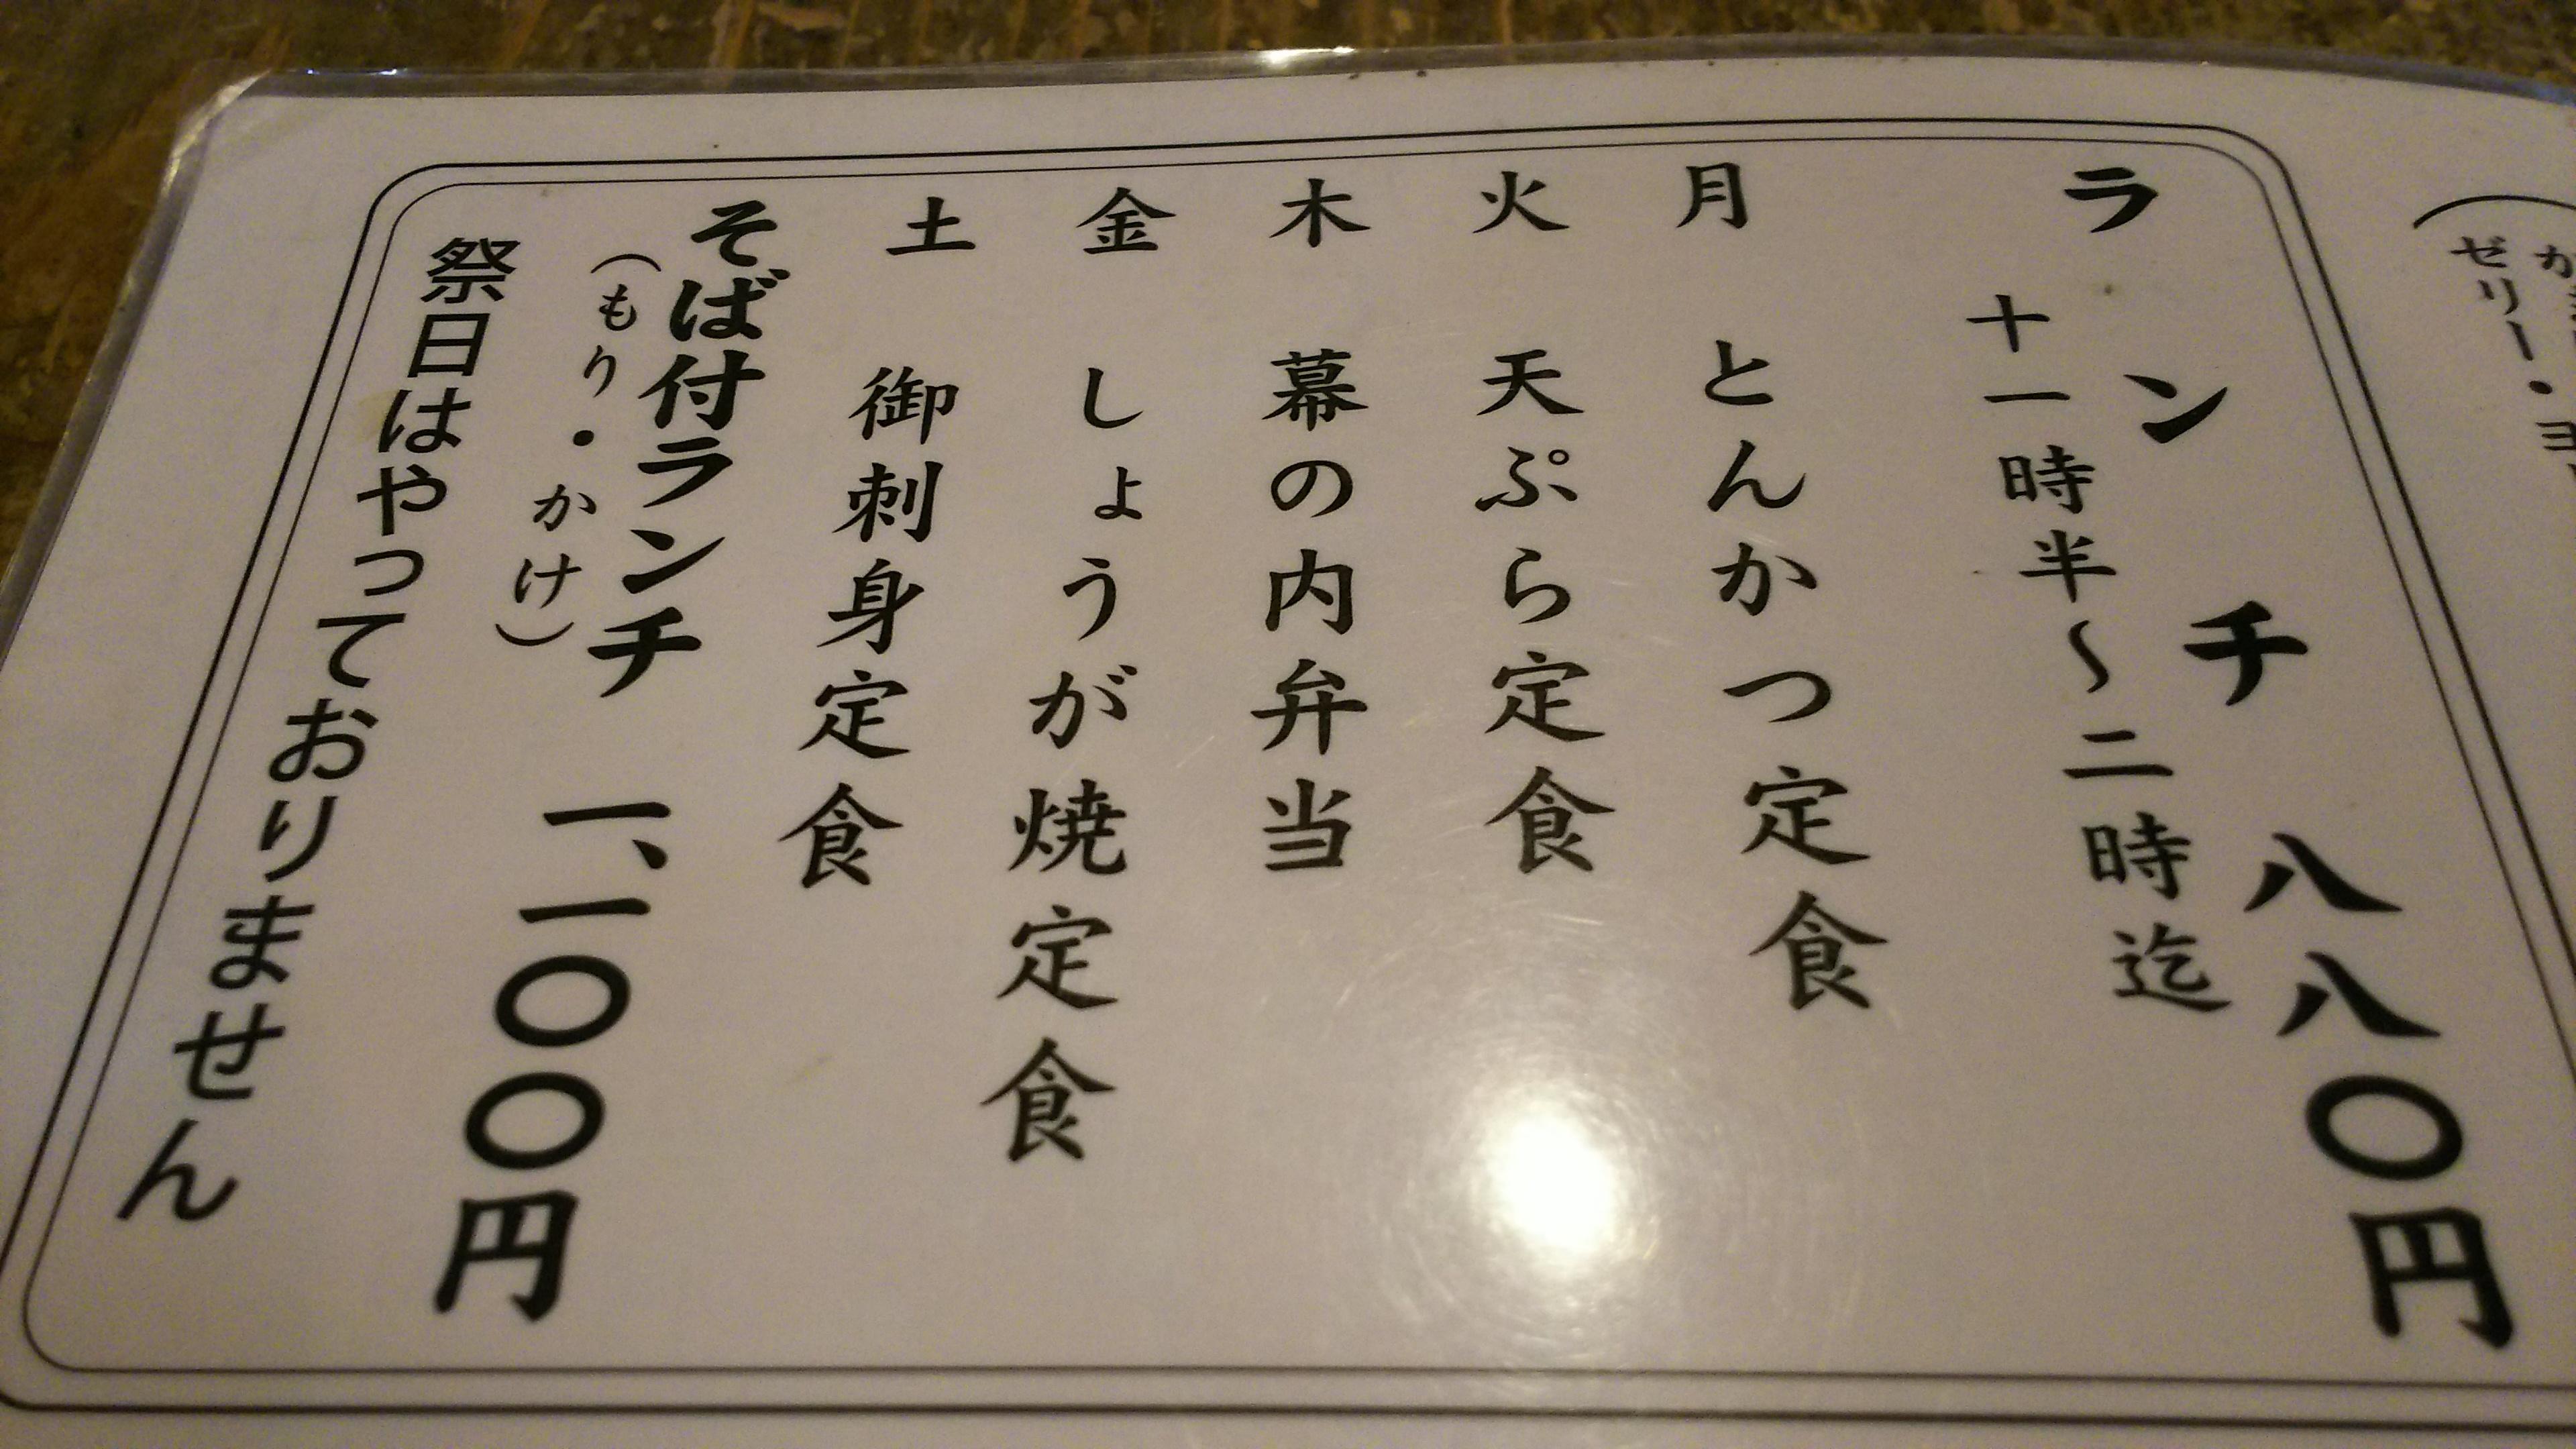 ゼリー・ヨ
ランチ 八八〇円
十一時半～二時迄
月 とんかつ定食
火 天ぷら定食
木 幕の内弁当
金 しょうが焼定食
土 御刺身定食
そば付ランチ 一、一〇〇円
（もり・かけ）
祭日はやっておりません